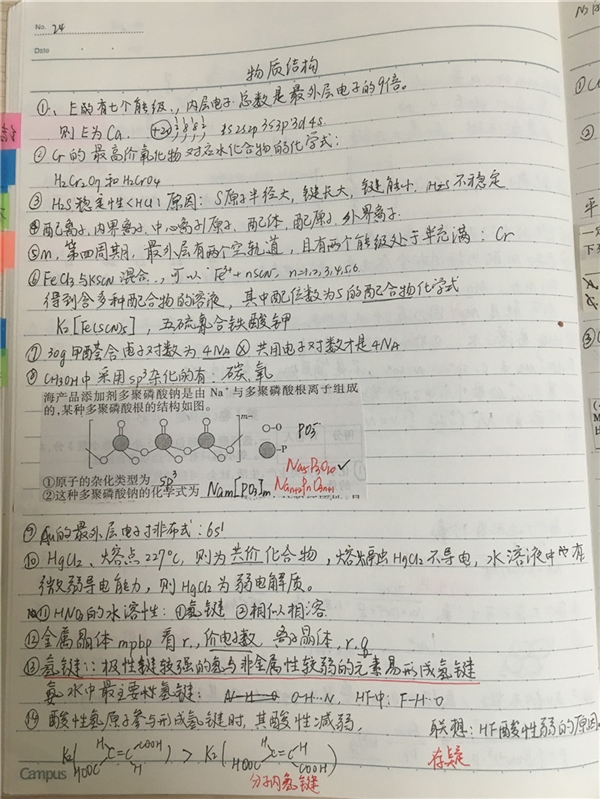 No. 24
Date
物质结构
①、E的有七个能级.,内层电子总数是最外层电子的9倍。
则E为Ca. (+20) 2 8 8 2 1s2s2p3s3p3d4s.
② Cr的最高价氧化物对应水化合物的化学式:
H2Cr2O7和H2CrO4
③ H2S稳定性<HCl原因: S原子半径大,键长大,键能小. H2S不稳定
④配离子,内界离子,中心离子/原子,配体,配原子,外界离子.
⑤m,第四周期,最外层有两个空轨道,且有两个能级处于半充满:Cr
⑥FeCl3与KSCN混合.,可以Fe3++nSCN- n=1,2,3,4,5,6
得到含多种配合物的溶液,其中配位数为5的配合物化学式
K2[Fe(SCN)5],五硫氰合铁酸钾
⑦30g甲醛含电子对数为4NA ⊗ 共用电子对数才是4NA
⑧CH3OH中采用sp3杂化的有:碳、氧
海产品添加剂多聚磷酸钠是由Na+与多聚磷酸根离子组成
的,某种多聚磷酸根的结构如图。
m-
○-O PO3-
●-P
Na5P3O10 ✓
①原子的杂化类型为 sp3
②这种多聚磷酸钠的化学式为 Nam[PO3]m Nan+2PnO3n+1
⑨Au的最外层电子排布式:6s1
⑩HgCl2、熔点227℃,则为共价化合物,熔融HgCl2不导电,水溶液中有
微弱导电能力,则HgCl2为弱电解质。
⑪HNO3的水溶性:①氢键 ②相似相溶
⑫金属晶体mpbp看r.,价电子数 离子晶体,r.q
⑬氢键::极性键较强的氢与非金属性较弱的元素易形成氢键
氨水中最主要性氢键: N-H…O O-H…N, HF中:F-H…O
⑭酸性氢原子参与形成氢键时,其酸性减弱, 联想:HF酸性弱的原因
K2(H HOOC C=C COOH H) > K2(H HOOC C=C H COOH) 存疑
分子内氢键
Campus